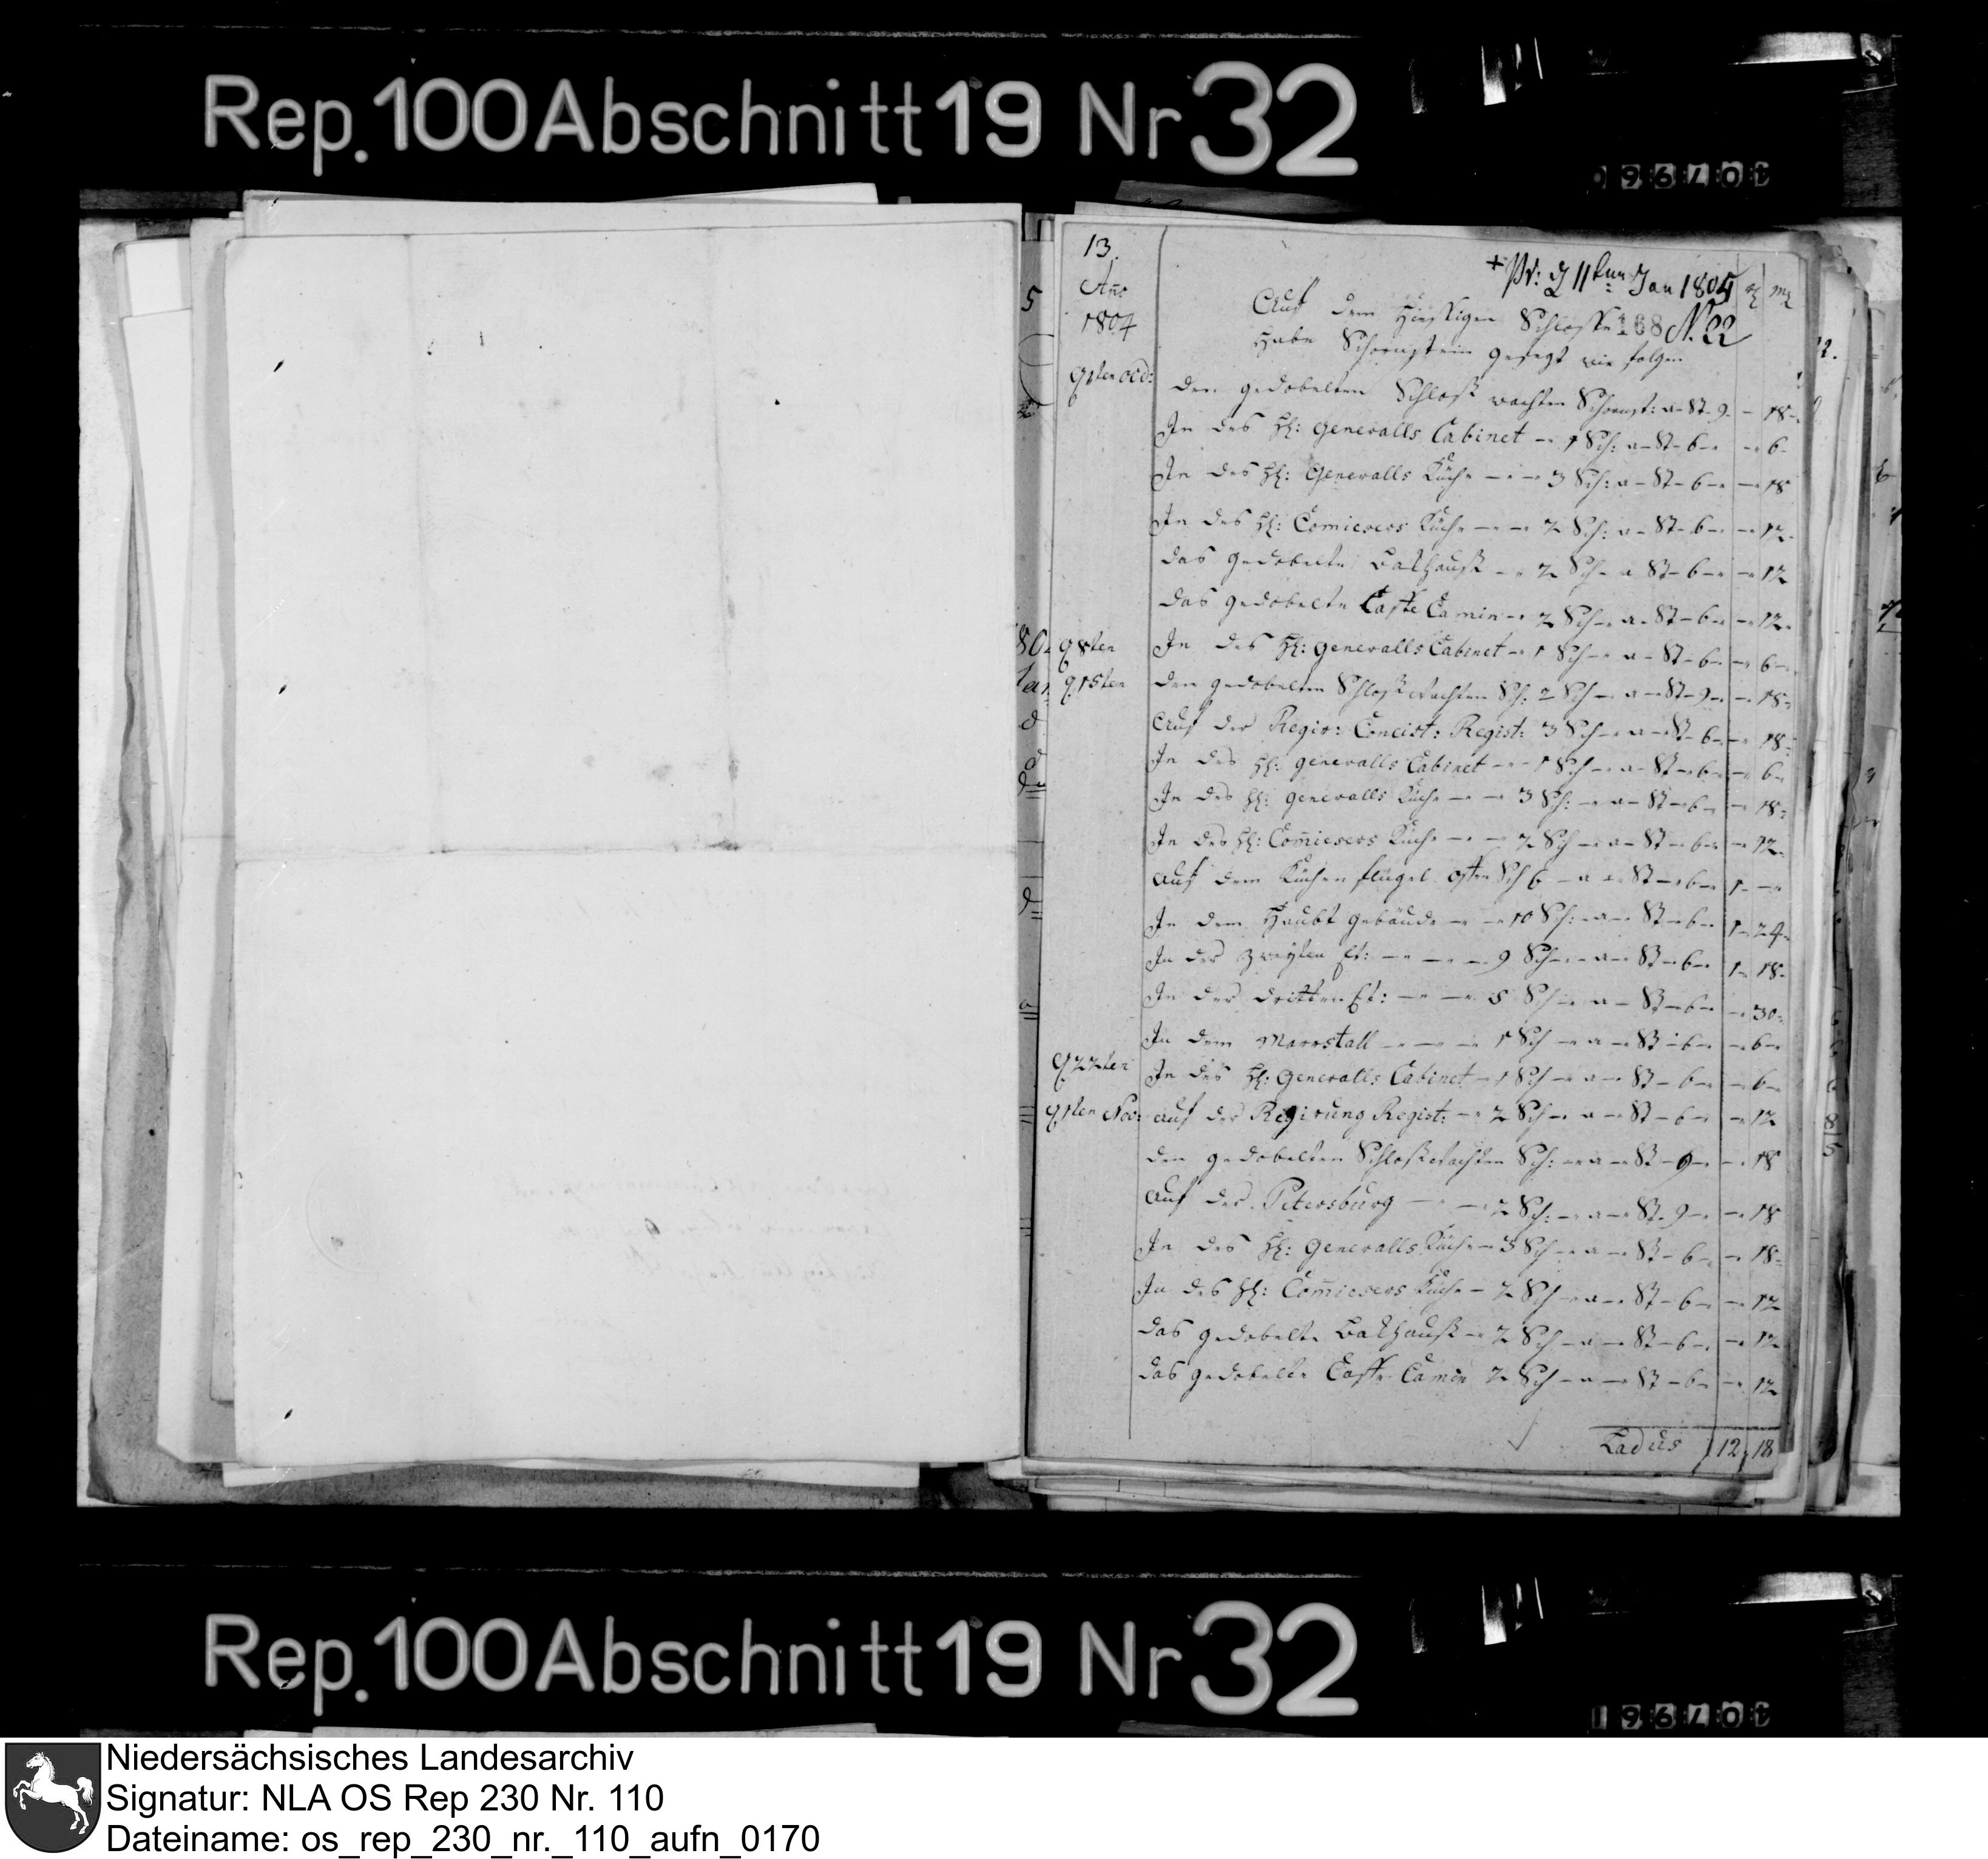 Rep. 100 Abschnitt 19 Nr 32
13.
Año
1804
+ Pr: d 11ten Jan 1805
168 N. 22
Auf dem Hiesigen Schlosse
Habe Schornstein gefegt wie folgen
d 1sten Oct: den gedobelten Schloß wachten Schornst: a - St - 9 - 18
In des H: Generalls Cabinet - 1 Sch: a - St - 6 - 6
In des H: Generalls Küche - 3 Sch: a - St - 6 - 18
In des H: Comiesers Küche - 2 Sch: a - St - 6 - 12
das gedobelte Bakhauß - 2 Sch - a St - 6 - 12
das gedobelte Caffe Camin - 2 Sch - a - St - 6 - 12
d 8ten In des H: Generalls Cabinet - 1 Sch - a - St - 6 - 6
d 15ten den gedobelten Schloßwachten Sch: 2 Sch - a - St - 9 - 18
Auf der Regir: Concist: Regist: 3 Sch - a - St - 6 - 18
In des H: Generalls Cabinet - 1 Sch - a - St - 6 - 6
In des H: Generalls Küche - 3 Sch: - a - St - 6 - 18
In des H: Com̄iesers Küche - 2 Sch - a - St - 6 - 12
Auf dem Küchen flügel Sch 6 - a - St - 6 - 1 -
In dem Haubt gebäude - 10 Sch: - a - St - 6 - 1 - 24
In der zweyten Et: - 9 Sch - a - St - 6 - 1 - 18
In der dritten Et: - 5 Sch - a - St - 6 - 30
In dem Marrstall - 1 Sch - a - St - 6 - 6
d 22ten In des H: Generalls Cabinet - 1 Sch - a - St - 6 - 6
d 1sten Nov: auf der Regirung Regist: - 2 Sch - a - St - 6 - 12
den gedobelten Schloßwachten Sch: - a - St - 9 - 18
auf der Petersburg - 2 Sch: - a - St - 9 - 18
In des H: Generalls Küche - 3 Sch - a - St - 6 - 18
In des H: Com̄iesers Küche - 2 Sch - a - St - 6 - 12
das gedobelte Bakhauß - 2 Sch - a - St - 6 - 12
das gedobelte Caffe Camin 2 Sch - a - St - 6 - 12
Ladus 12 18
Rep. 100 Abschnitt 19 Nr 32
Niedersächsisches Landesarchiv
Signatur: NLA OS Rep 230 Nr. 110
Dateiname: os_rep_230_nr._110_aufn_0170